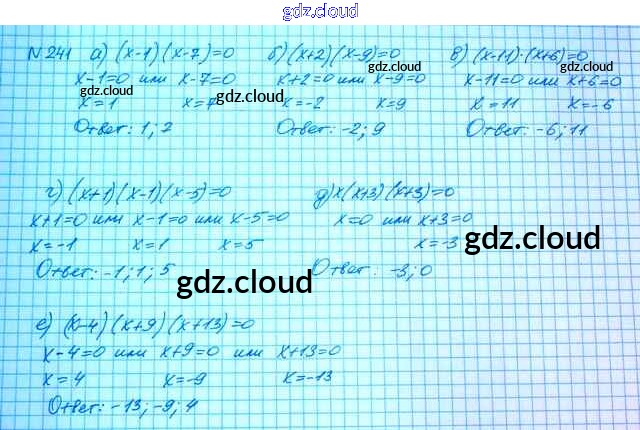 gdz.cloud
N 241 а) (x-1)(x-7)=0 б) (x+2)(x-9)=0 в) (x-11)·(x+6)=0
x-1=0 или x-7=0 x+2=0 или x-9=0 x-11=0 или x+6=0
gdz.cloud gdz.cloud gdz.cloud gdz.cloud
x=1 x=7 x=-2 x=9 x=11 x=-6
Ответ: 1; 7 Ответ: -2; 9 Ответ: -6; 11
г) (x+1)(x-1)(x-5)=0 д) x(x+3)(x+3)=0
x+1=0 или x-1=0 или x-5=0 x=0 или x+3=0
x=-1 x=1 x=5 x=-3 gdz.cloud
Ответ: -1; 1; 5 Ответ: -3; 0
gdz.cloud
е) (x-4)(x+9)(x+13)=0
x-4=0 или x+9=0 или x+13=0
x=4 x=-9 x=-13
Ответ: -13; -9; 4